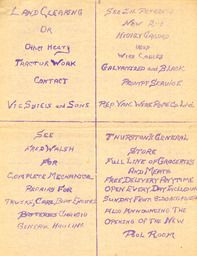 LAND CLEARING
OR
OTHER HEAVY
TRACTOR WORK
CONTACT
VIC SHIELS AND SONS
SEE
FRED WALSH
FOR
COMPLETE MECHANICAL
REPAIRS FOR
TRUCKS, CARS, BOAT ENGINES
BATTERIES CHARGED
GENERAL HAULING
SEE E.H. PETERSON
NEW AND
USED
WIRE CABLES
GALVANIZED AND BLACK
PROMPT SERVICE
REP. VAN. WIRE ROPE CO. LTD.
THURSTON'S GENERAL
STORE
FULL LINE OF GROCERIES
AND MEATS
FREE DELIVERY ANYTIME
OPEN EVERY DAY INCLUDING
SUNDAY
ALSO ANNOUNCING THE
OPENING OF THE NEW
POOL ROOM